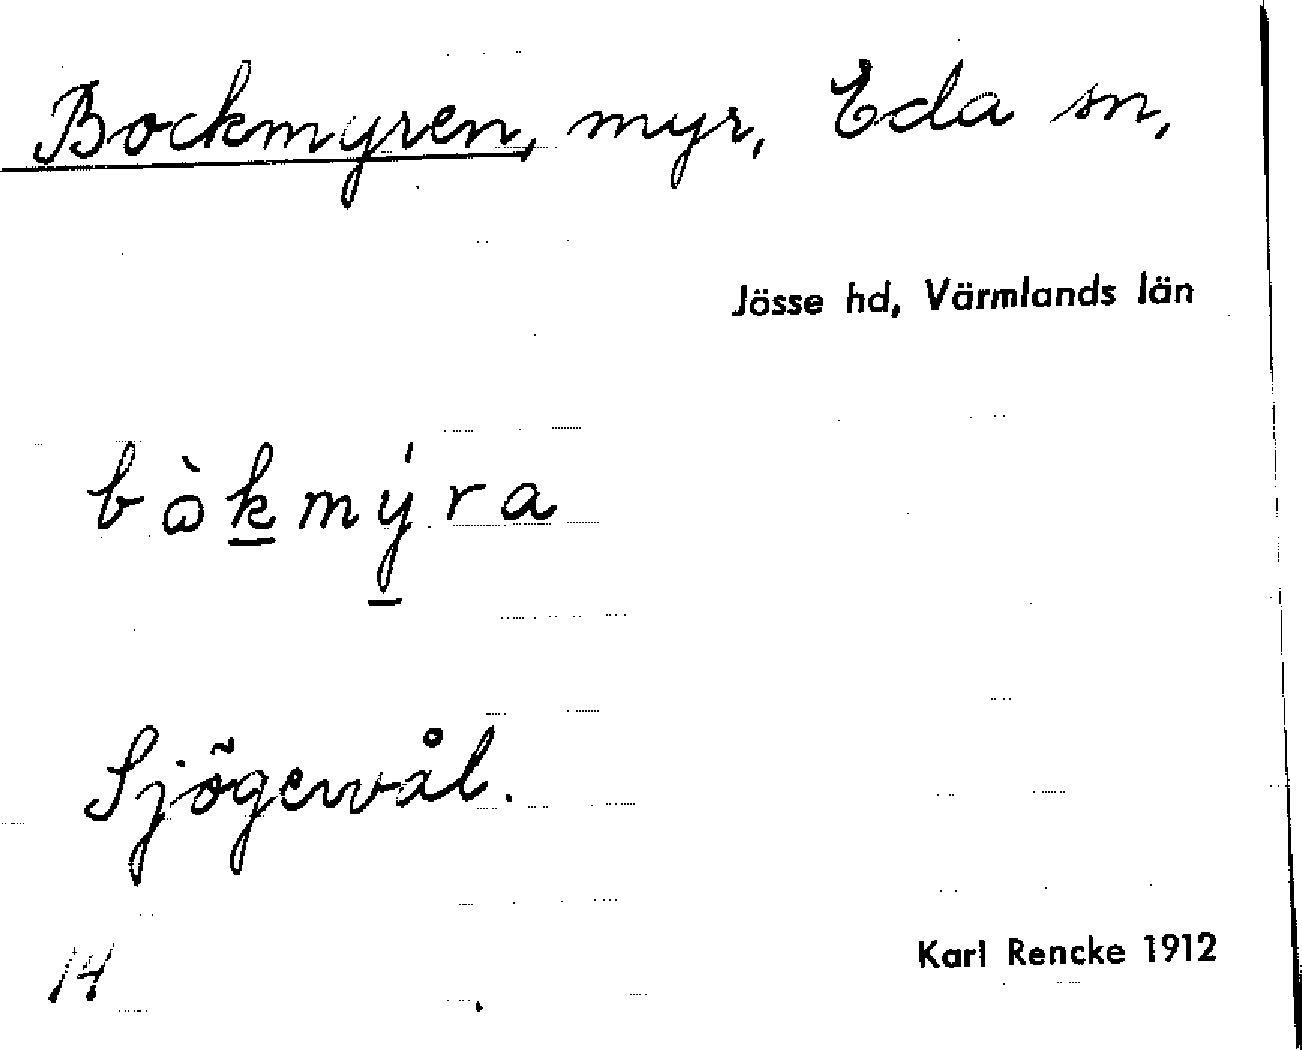 Bockmyren, myr, Eda sn,
Jösse hd, Värmlands län
bòkmýra
Sjögervål.
14
Karl Rencke 1912